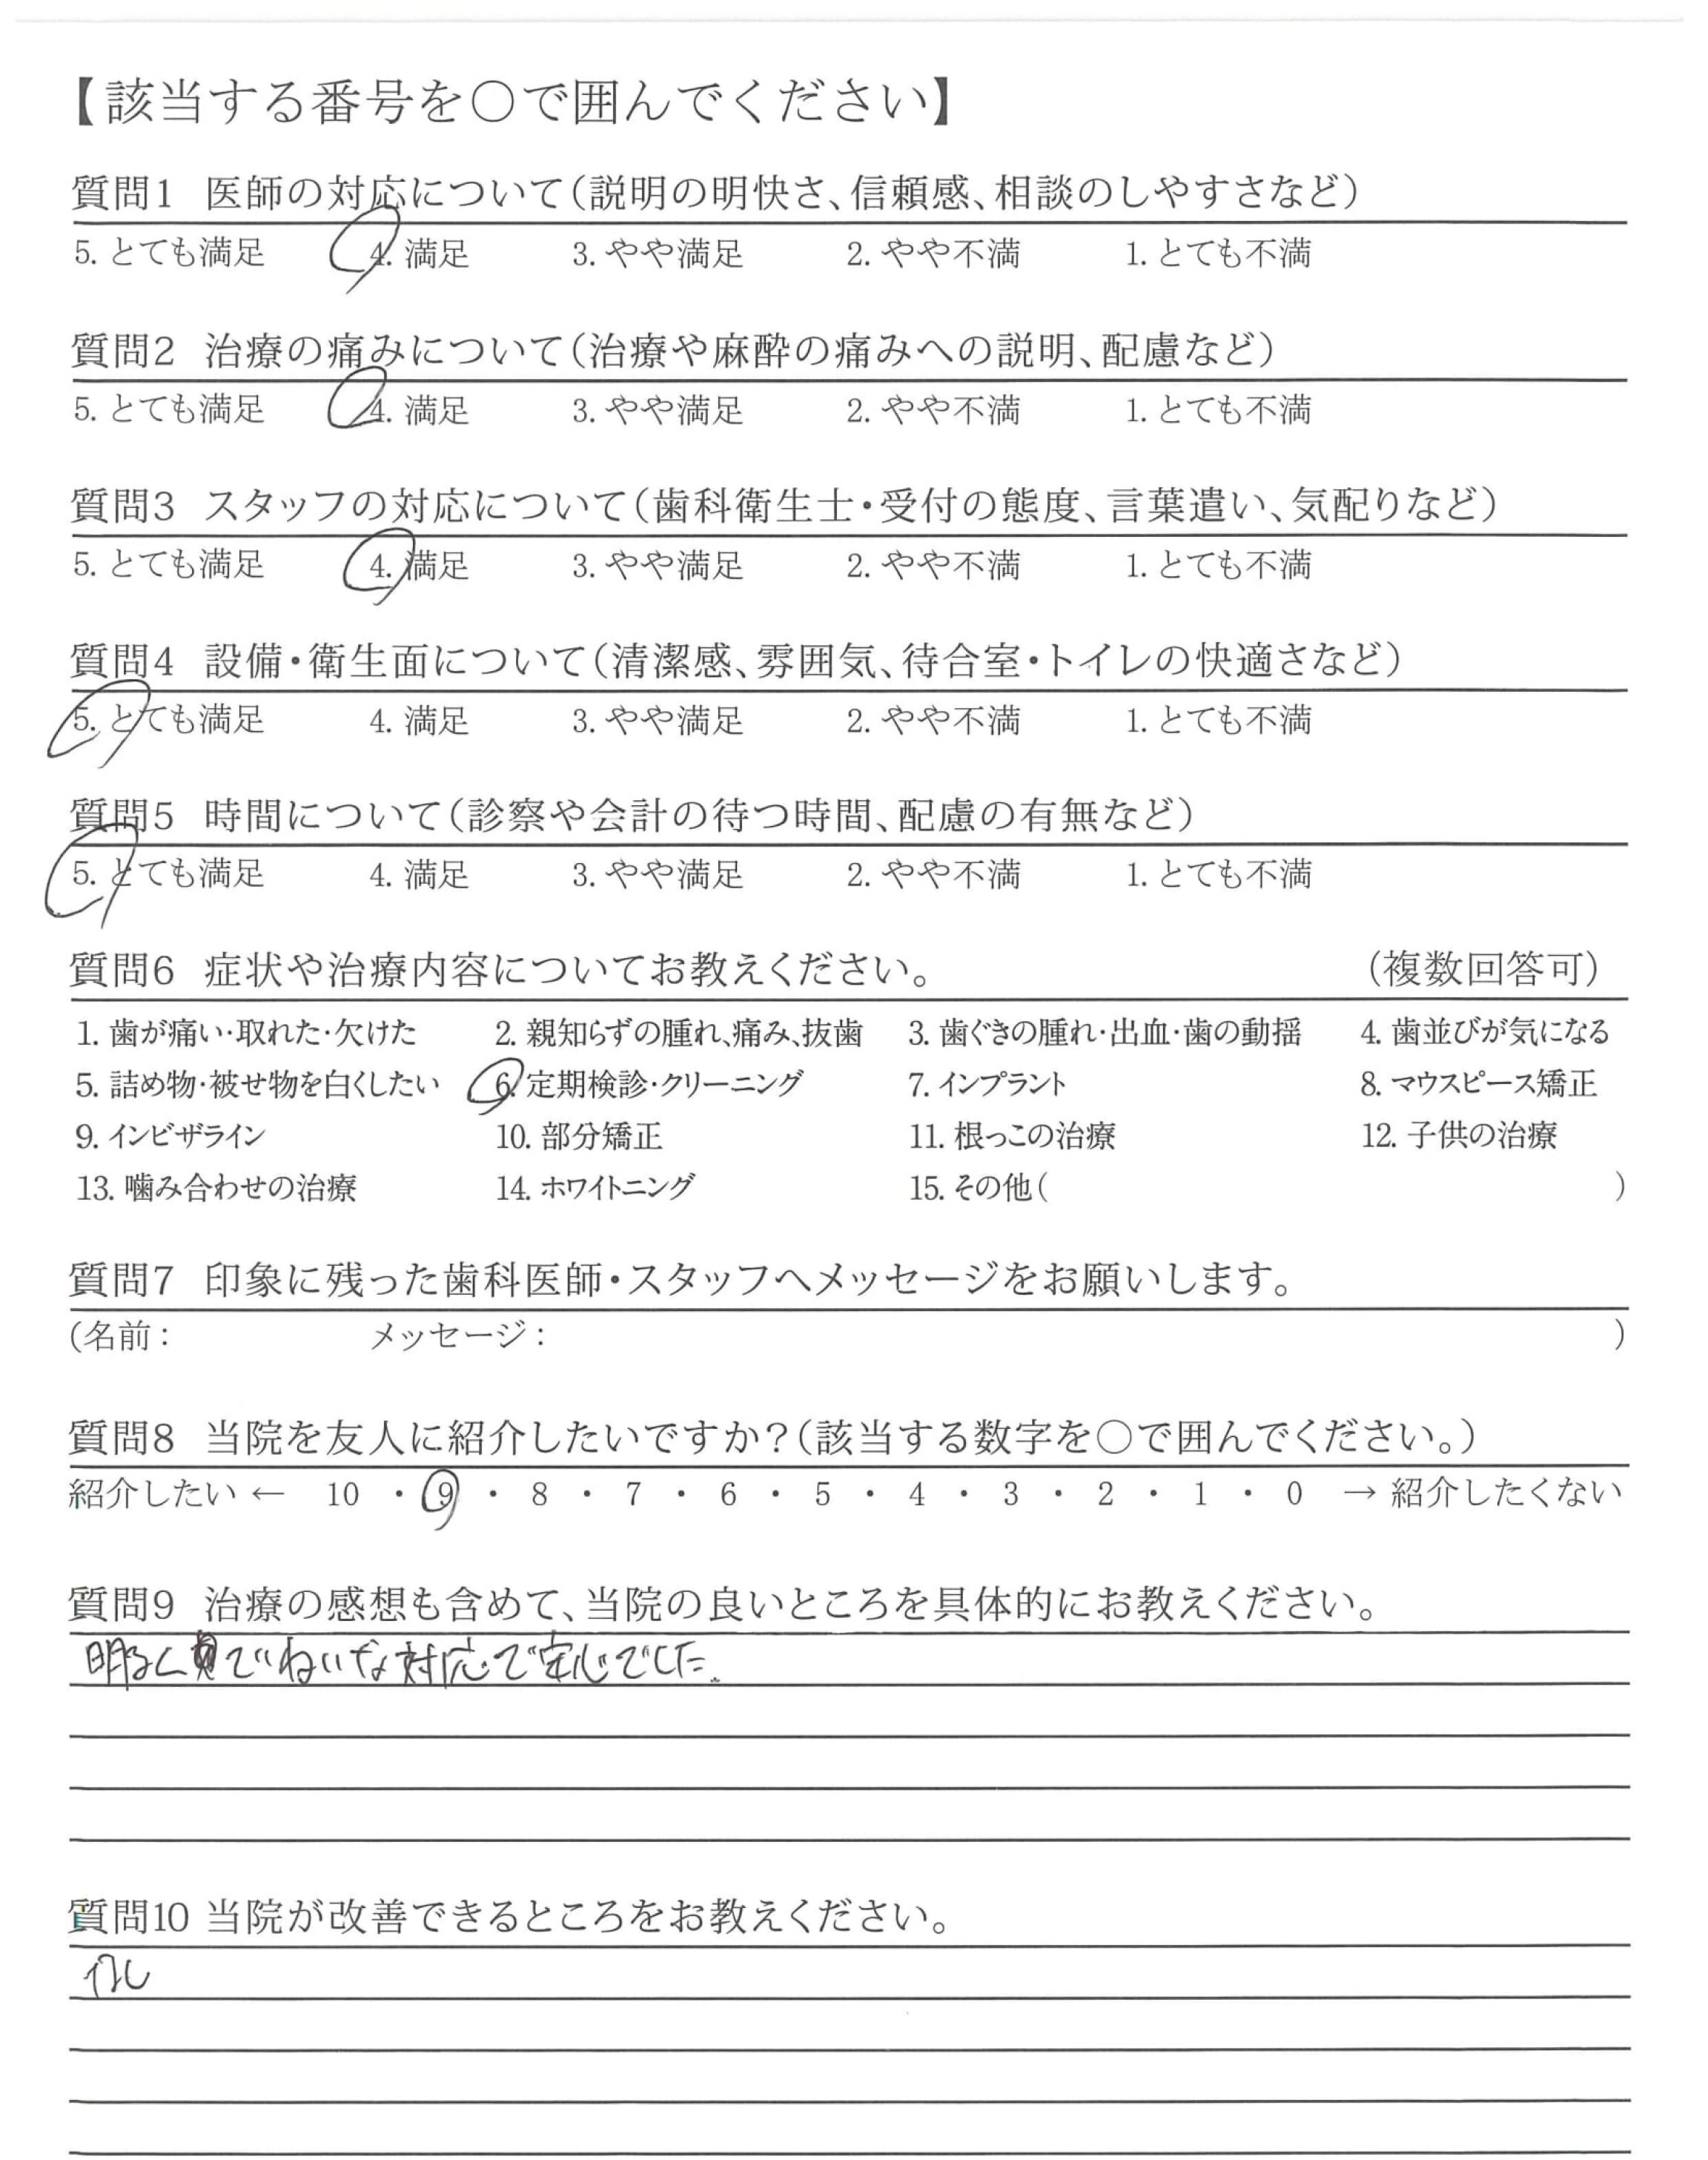 【該当する番号を〇で囲んでください】
質問1 医師の対応について(説明の明快さ、信頼感、相談のしやすさなど)
5. とても満足 4. 満足 3. やや満足 2. やや不満 1. とても不満
質問2 治療の痛みについて(治療や麻酔の痛みへの説明、配慮など)
5. とても満足 4. 満足 3. やや満足 2. やや不満 1. とても不満
質問3 スタッフの対応について(歯科衛生士・受付の態度、言葉遣い、気配りなど)
5. とても満足 4. 満足 3. やや満足 2. やや不満 1. とても不満
質問4 設備・衛生面について(清潔感、雰囲気、待合室・トイレの快適さなど)
5. とても満足 4. 満足 3. やや満足 2. やや不満 1. とても不満
質問5 時間について(診察や会計の待つ時間、配慮の有無など)
5. とても満足 4. 満足 3. やや満足 2. やや不満 1. とても不満
質問6 症状や治療内容についてお教えください。 (複数回答可)
1. 歯が痛い・取れた・欠けた 2. 親知らずの腫れ、痛み、抜歯 3. 歯ぐきの腫れ・出血・歯の動揺 4. 歯並びが気になる
5. 詰め物・被せ物を白くしたい 6. 定期検診・クリーニング 7. インプラント 8. マウスピース矯正
9. インビザライン 10. 部分矯正 11. 根っこの治療 12. 子供の治療
13. 噛み合わせの治療 14. ホワイトニング 15. その他( )
質問7 印象に残った歯科医師・スタッフへメッセージをお願いします。
(名前: メッセージ: )
質問8 当院を友人に紹介したいですか?(該当する数字を〇で囲んでください。)
紹介したい ← 10 ・ 9 ・ 8 ・ 7 ・ 6 ・ 5 ・ 4 ・ 3 ・ 2 ・ 1 ・ 0 → 紹介したくない
質問9 治療の感想も含めて、当院の良いところを具体的にお教えください。
明るくていねいな対応で安心でした。
質問10 当院が改善できるところをお教えください。
なし